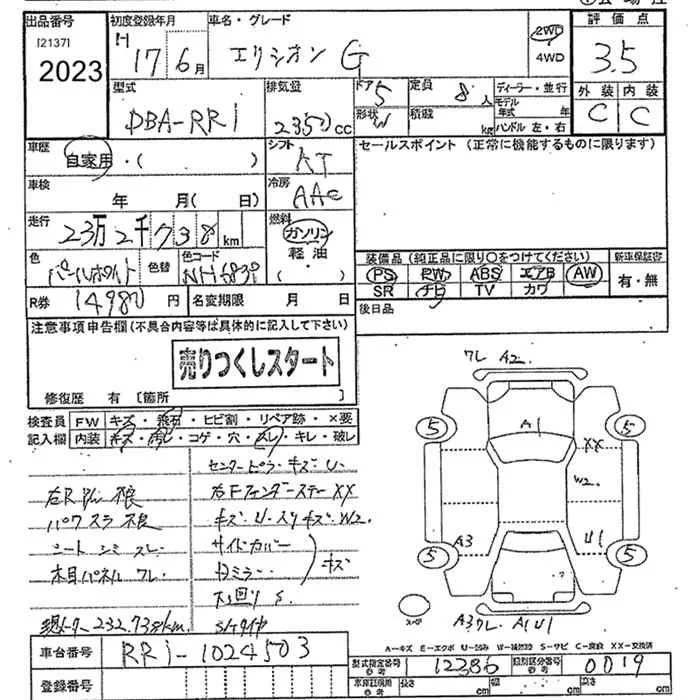 出品番号
[2137]
2023
初度登録年月
H 17 6月
車名・グレード
エリシオン G
2WD
4WD
評価点
3.5
外装 内装
C C
型式
DBA-RR1
排気量
2350cc
ドア 5
形状 W
定員 8人
積載 kg
ディーラー・並行
モデル年式 年
ハンドル 左・右
車歴
自家用・( )
シフト
AT
セールスポイント (正常に機能するものに限ります)
車検 年 月( 日)
冷房
AAC
走行
23万2千738km
燃料
ガソリン
軽油
( ・ )
色
パールホワイト
色替
色コード
NH683P
装備品 (純正品に限り○をつけてください)
PS PW ABS エアB AW
SR ナビ TV カワ
新車保証書
有・無
R券 14980円
名変期限 月 日
後日品
注意事項申告欄(不具合内容等は具体的に記入して下さい)
売りつくしスタート
修復歴 有 [箇所 ]
検査員
記入欄
FW キズ・飛石・ヒビ割・リペア跡・×要
内装 キズ・汚レ・コゲ・穴・スレ・キレ・破レ
センターピラーキズ・U
パワスラ不良
キズ・U・スリキズ・W2.
シートシミスレ
サイドカバー
木目パネルワレ
ドアミラー
キズ
下回りS
232,738km
ワレ A2
A1
XX
W2
A3
U1
5
5
5
5
スペア
A3ワレ A1U1
A-キズ E-エクボ U-凹み W-補修跡 S-サビ C-腐食 XX-交換済
車台番号
RR1-1024503
登録番号
型式指定番号 12386
類別区分番号 0019
長さ cm 幅 cm 高さ cm